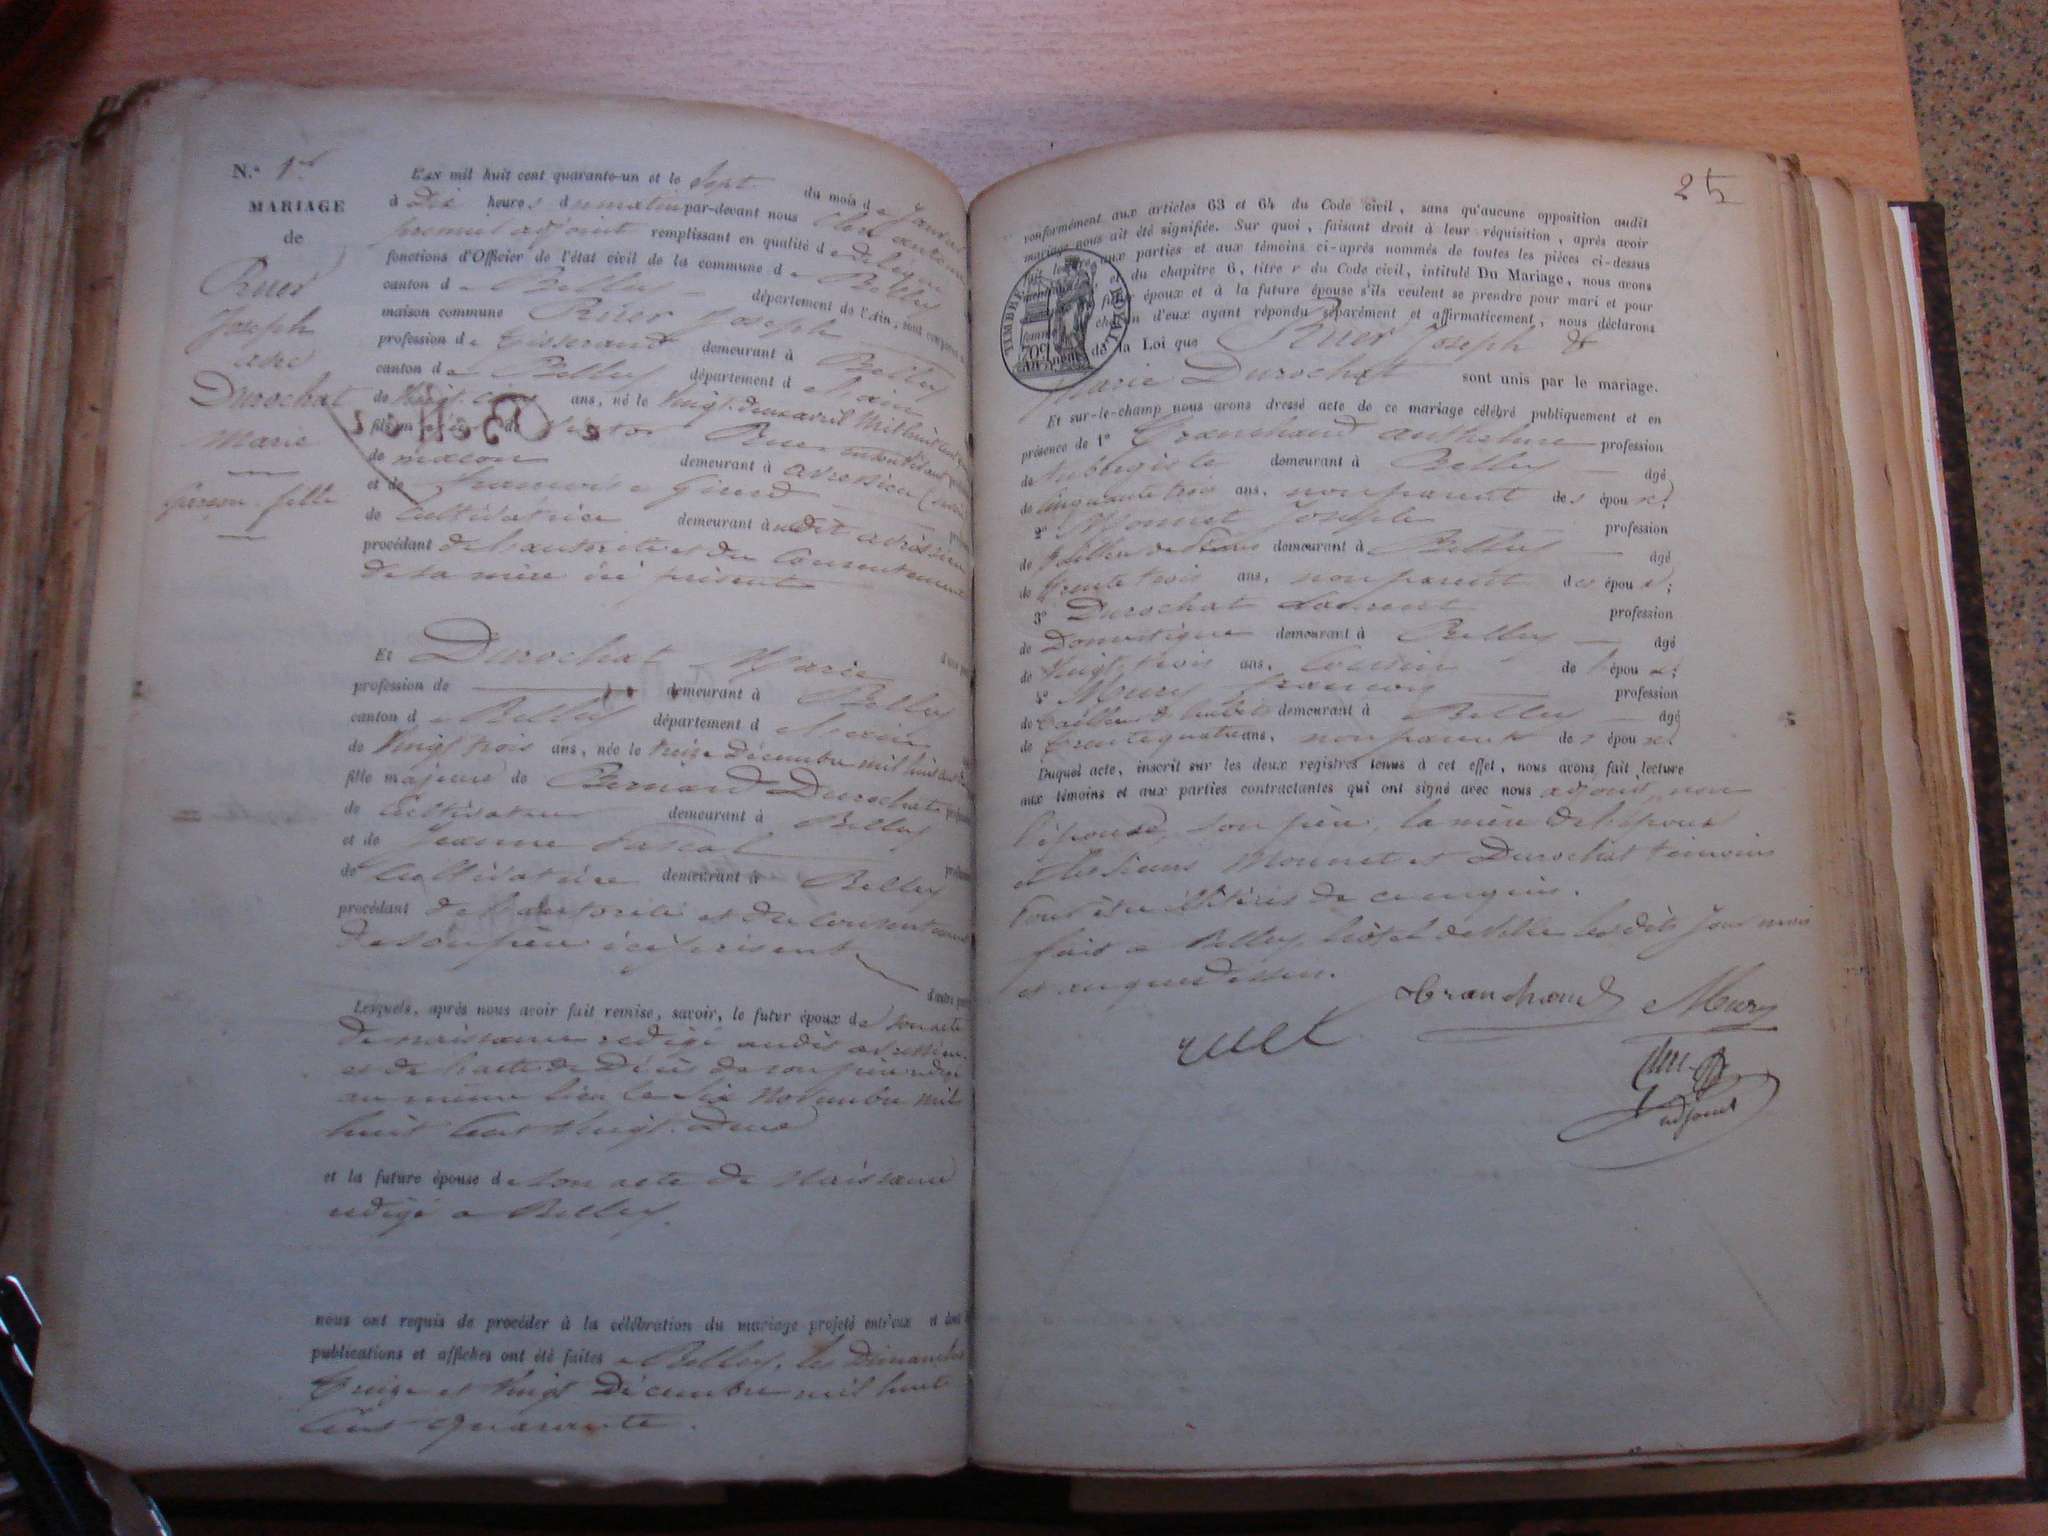 N.° 1er
MARIAGE
de
Ruer
Joseph
avec
Durochat
Marie
Garçon - fille
L'an mil huit cent quarante-un et le Sept du mois de Janvier
à Dix heures du matin par-devant nous
premier adjoint remplissant en qualité de délégué
fonctions d'Officier de l'état civil de la commune de Belley
canton de Belley département de l'Ain, sont comparus
maison commune Ruer Joseph
profession de tisserand demeurant à Belley
canton de Belley département de l'ain
de Vingt-cinq ans, né le Vingt-deux avril Mil huit cent
fils de Ruer
de macon demeurant à avressieu
et de françoise Girerd
de Cultivatrice demeurant à audit avressieu
procédant de l'autorité et du Consentement
de sa mère ici présente
Et Durochat Marie
profession de demeurant à Belley
canton de Belley département de l'ain
de Vingt trois ans, née le treize Décembre mil huit cent
fille majeure de Bernard Durochat
de Cultivateur demeurant à Belley
et de Jeanne Pascal
de Cultivatrice demeurant à Belley
procédant de l'autorité et du Consentement
de son père ici présent
d'autre part
Lesquels, après nous avoir fait remise, savoir, le futur époux de son acte
de naissance rédigé audit avressieu
et de l'acte de Décès de son père rédigé
au même lieu le Six Novembre mil
huit Cent Vingt-deux
et la future épouse de son acte de Naissance
rédigé a Belley.
nous ont requis de procéder à la célébration du mariage projeté entr'eux et dont
publications et affiches ont été faites a Belley, les Dimanches
treize et Vingt Décembre mil huit
Cent quarante.
25
conformément aux articles 63 et 64 du Code civil, sans qu'aucune opposition audit
mariage nous ait été signifiée. Sur quoi, faisant droit à leur réquisition, après avoir
fait lecture aux parties et aux témoins ci-après nommés de toutes les pièces ci-dessus
et du chapitre 6, titre v du Code civil, intitulé Du Mariage, nous avons
futur époux et à la future épouse s'ils veulent se prendre pour mari et pour
femme chacun d'eux ayant répondu séparément et affirmativement, nous déclarons
au nom de la Loi que Ruer Joseph &
Marie Durochat sont unis par le mariage.
TIMBRE ROYAL
Et sur-le-champ nous avons dressé acte de ce mariage célébré publiquement et en
présence de 1° Granchand anthelme profession
de Aubergiste demeurant à Belley âgé
de Cinquante trois ans, non parent des époux;
2° Monnet Joseph profession
de demeurant à Belley âgé
de trente trois ans, non parent des époux;
3° Durochat Laurent profession
de Domestique demeurant à Belley âgé
de Vingt trois ans, Cousin de l'épouse;
4° Mury françois profession
de tailleur d'habits demeurant à Belley âgé
de trente quatre ans, non parent des époux;
Duquel acte, inscrit sur les deux registres tenus à cet effet, nous avons fait lecture
aux témoins et aux parties contractantes qui ont signé avec nous adjoint, non
l'épouse, son père, la mère de l'époux
et les sieurs Monnet et Durochat témoins
pour être illitérés de ce enquis.
fait a Belley, hôtel de Ville les dits Jour mois
et an que dessus.
Granchand Mury
ruer
adjoint